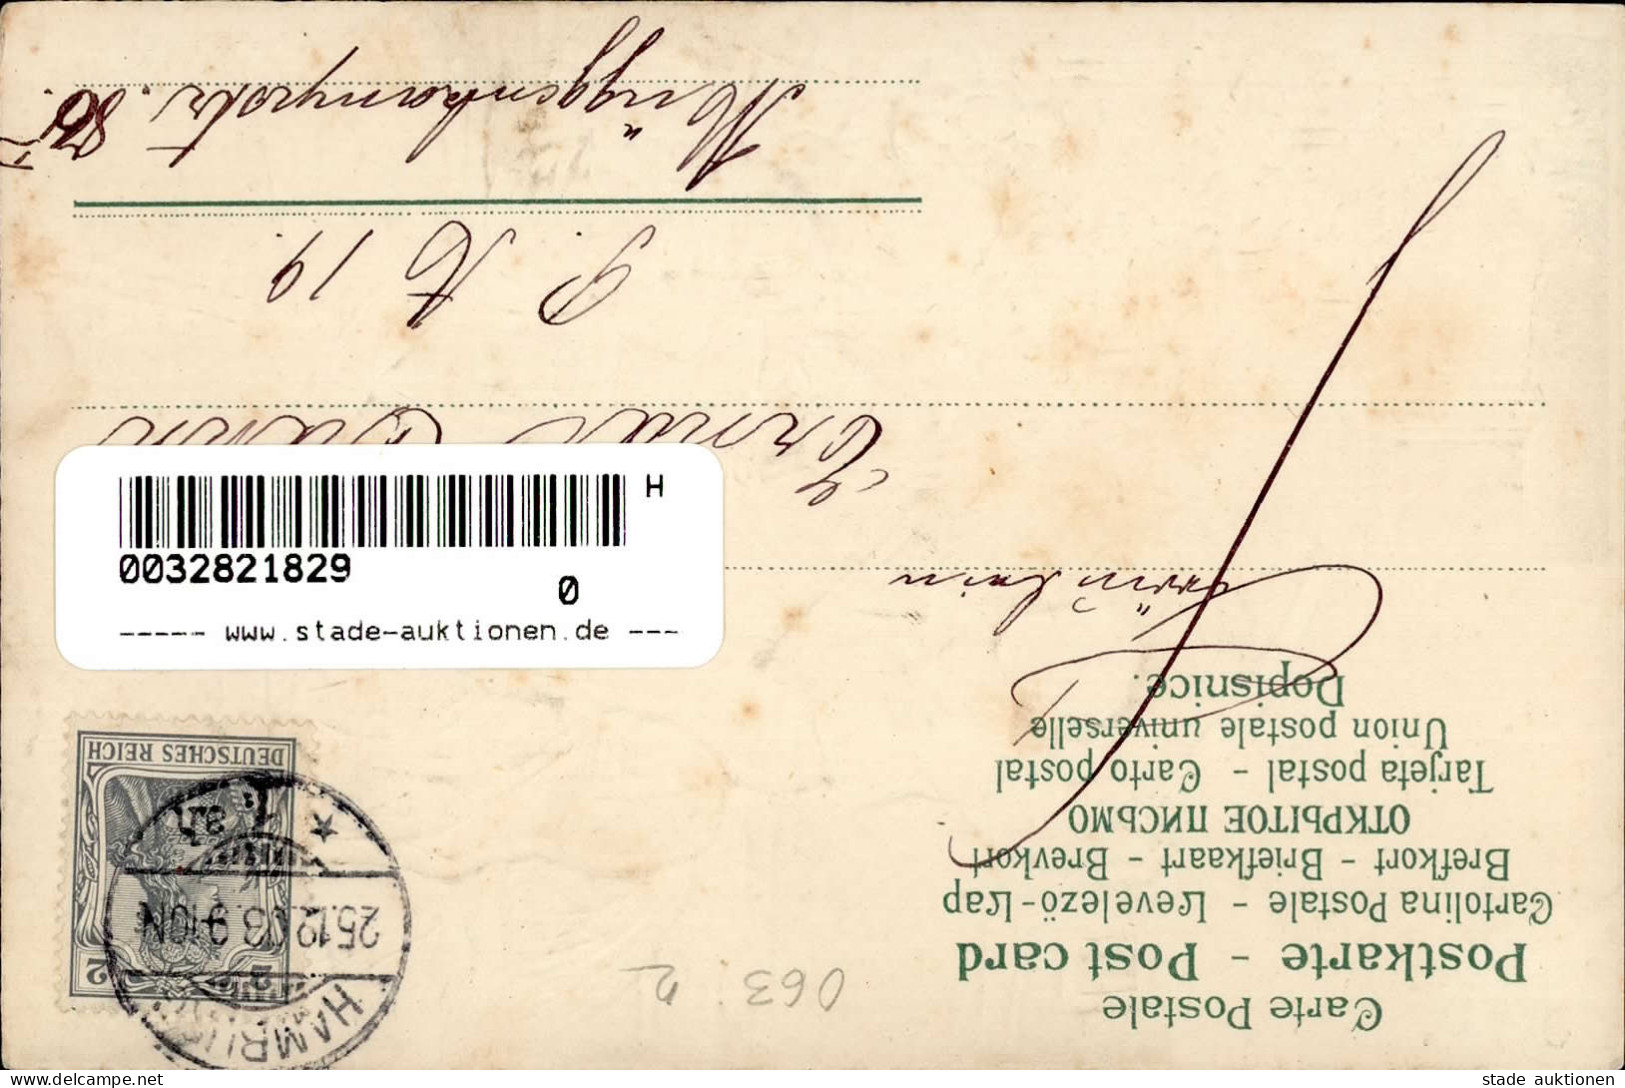 Carte Postale
Postkarte - Post card
Cartolina Postale - Levelező-Lap
Brefkort - Briefkaart - Brevkort
ОТКРЫТОЕ ПИСЬМО
Tarjeta postal - Carto postal
Union postale universelle
Dopisnice.
063 2
HAMBURG
25.12.03.9-10N
* 1 a.
2
2
DEUTSCHES REICH
Fräulein
Erna
P. A 19.
Müggenkampstr. 86.
H
0032821829
0
----- www.stade-auktionen.de ---
delcampe.net
stade auktionen